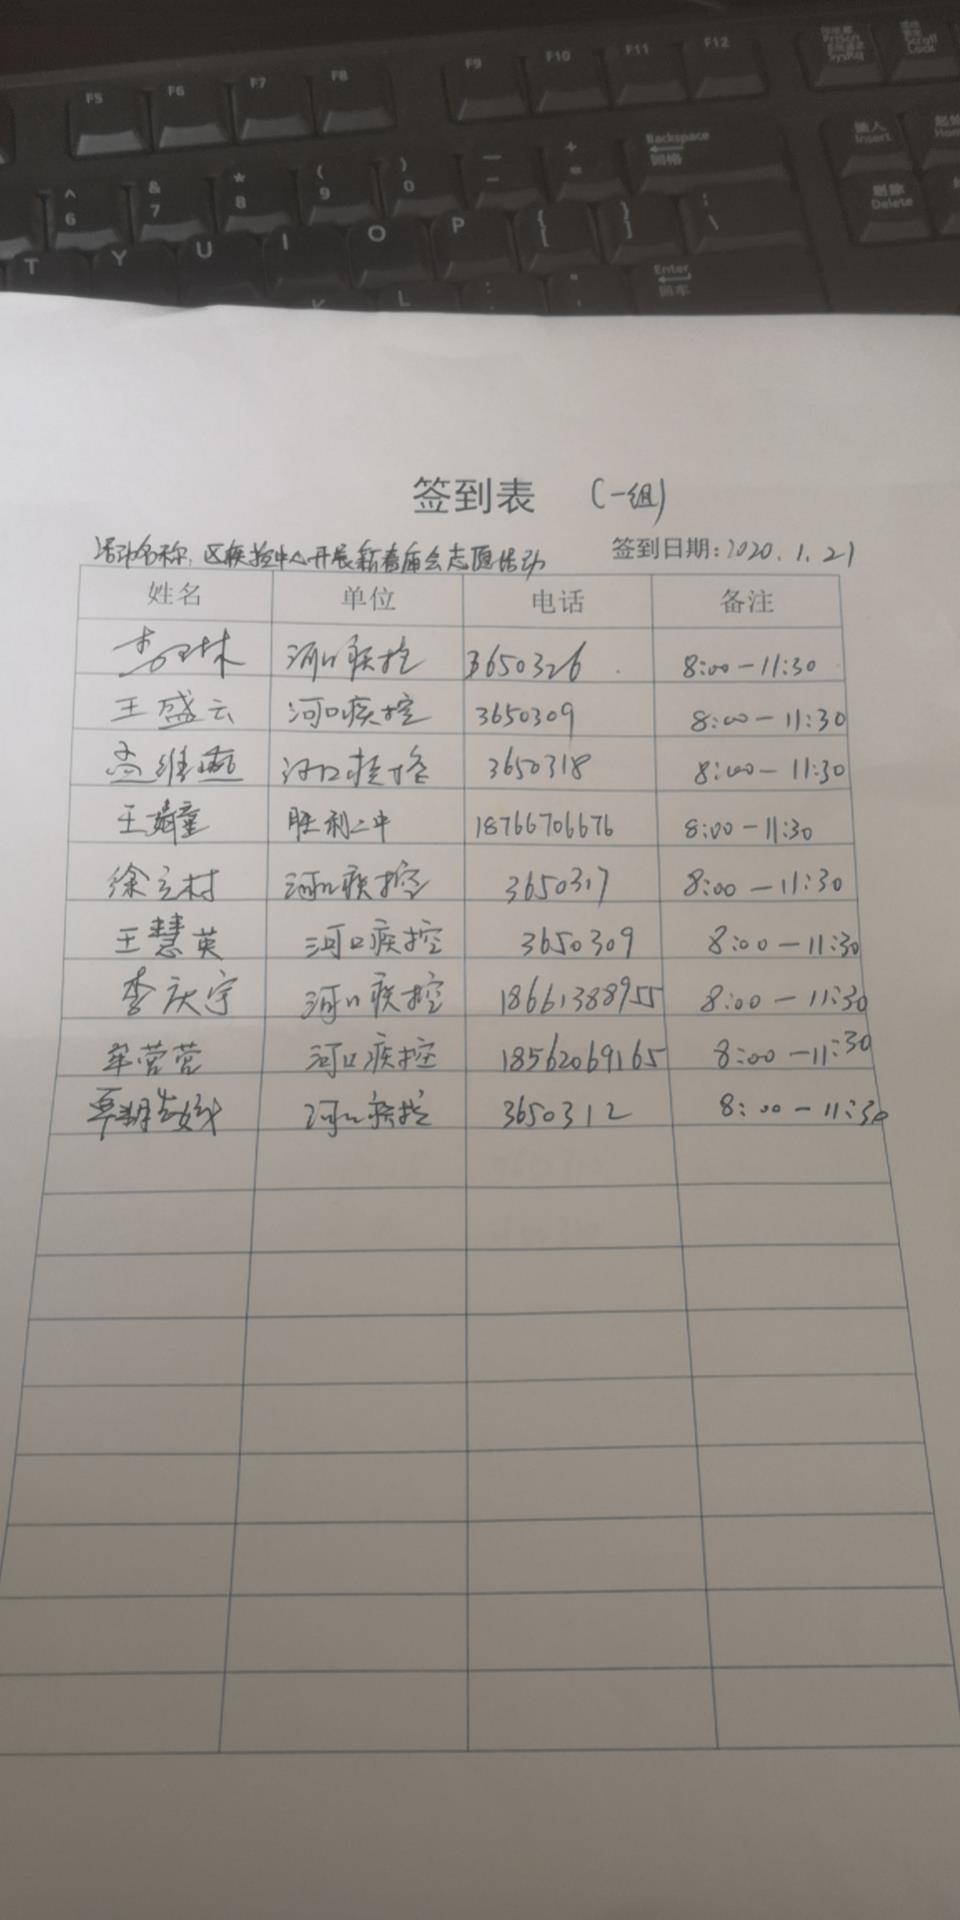 F5 F6 F7 F8 F9 F10 F11 F12 PrtScn SysRq Scroll Lock
^ 6 & 7 * 8 ( 9 ) 0 — - + = Backspace 回格 插入 Insert Home
T Y U I O P { [ } ] : \ 删除 Delete
K L : ; " ' Enter 回车
签到表 (一组)
活动名称: 区疾控中心开展新春庙会志愿活动 签到日期: 2020.1.21
姓名 单位 电话 备注
河口疾控 3650326 8:00-11:30
王盛云 河口疾控 3650309 8:00-11:30
高维 3650318 8:00-11:30
王婧童 胜利二中 18766706676 8:00-11:30
徐立村 河口疾控 3650317 8:00-11:30
王慧英 河口疾控 3650309 8:00-11:30
李庆宇 河口疾控 18661388955 8:00-11:30
牟营营 河口疾控 18562069165 8:00-11:30
河口疾控 3650312 8:00-11:30